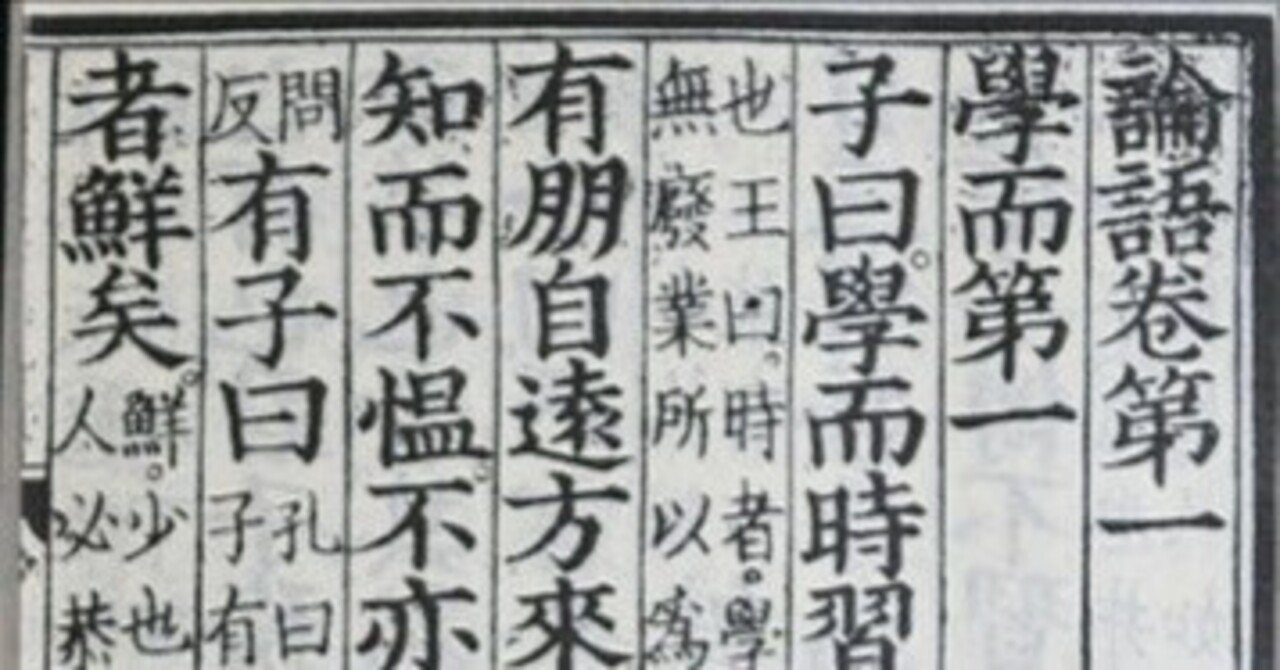 論語卷第一
學而第一
子曰。學而時習
也王曰。時者。學
無廢業所以為
有朋自遠方來
知而不慍。不亦
問
反
有子曰
孔曰
子有
者鮮矣。
鮮。少也
人必恭